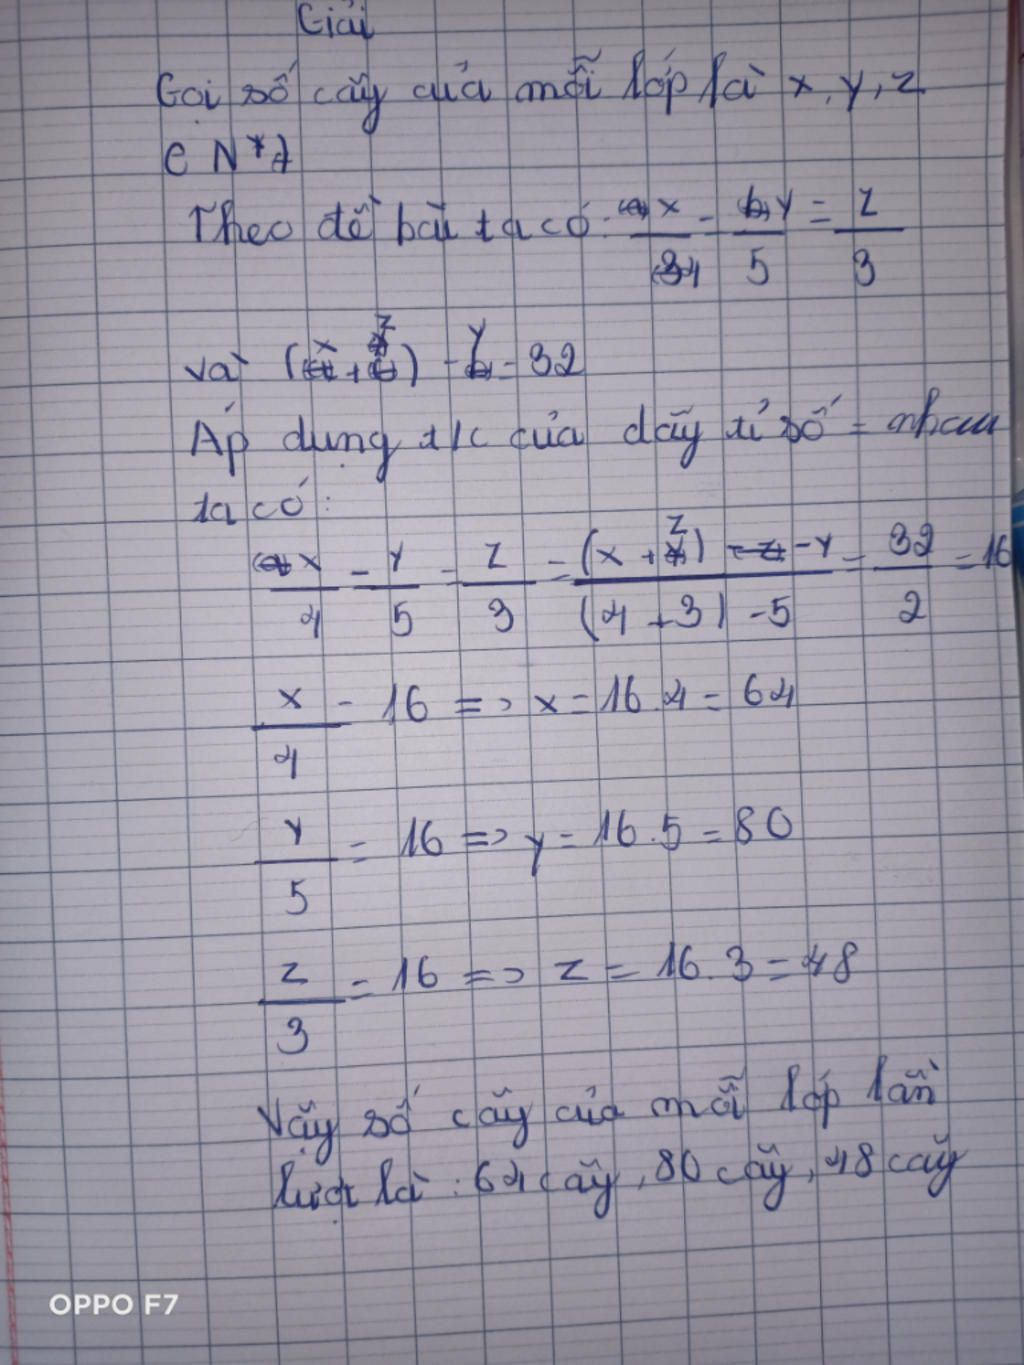 Giải
Gọi số cây của mỗi lớp là x, y, z
∈ N*
Theo đề bài ta có: x/4 = y/5 = z/3
và (x + z) - y = 32
Áp dụng t/c của dãy tỉ số = nhau
ta có:
x/4 = y/5 = z/3 = (x + z) - y/(4 + 3) - 5 = 32/2 = 16
x/4 = 16 => x = 16.4 = 64
y/5 = 16 => y = 16.5 = 80
z/3 = 16 => z = 16.3 = 48
Vậy số cây của mỗi lớp lần
lượt là: 64 cây, 80 cây, 48 cây
OPPO F7